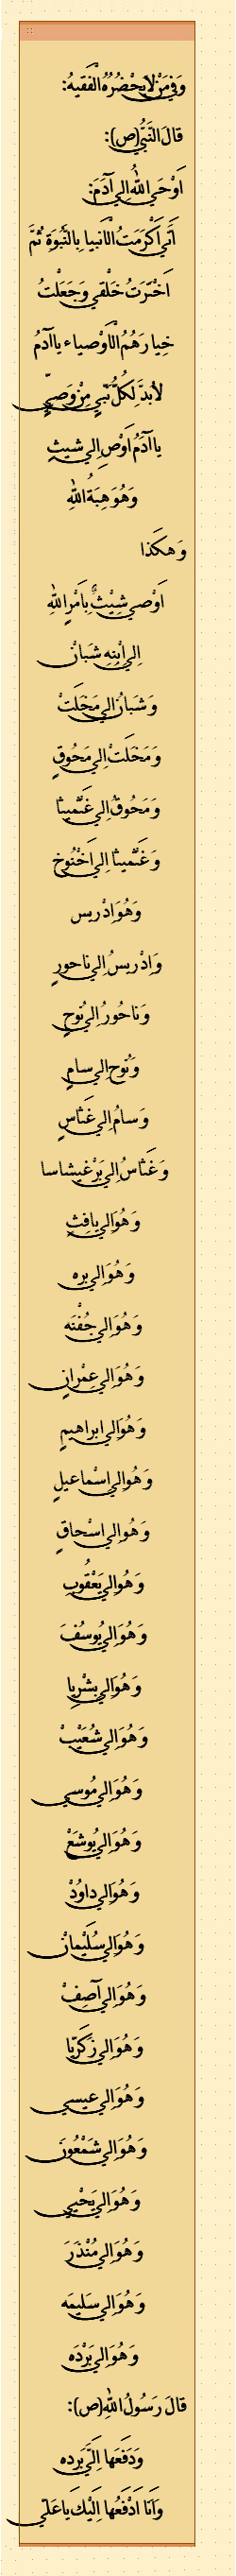 وَفِي مَنْ لايَحْضُرُهُ الْفَقيهُ:
قالَ النَّبيُّ(ص):
اَوْحَي اللهُ اِلي آدَمَ:
اَنّي اَكْرَمَتُ الْاَنبيا بِالنُّبُوَةِ ثُمَّ
اَخْتَرَتُ خَلْقي وَجَعَلْتُ
خِيارَهُمُ الْاَوْصياء ياآدَمُ
لابُدَّ لِكُلِّ نَبّيٍ مِنْ وَصيٍّ
ياآدَمُ اَوْصِ اِلي شيثٍ
وَهُوَ هِبَةُ اللهِ
وَهكَذا
اَوْصي شِيْثٌ بِاَمْرِ اللهِ
اِلي ابْنِهِ شَبانْ
وَشَبانُ اِلي مَخْلَتْ
وَمَخْلَتْ اِلي مَحُوقٍ
وَمَحُوقُ اِلي غَتْميثا
وَغَتْميثا اِلي اَخْنُوخٍ
وَهُوَ اِدْريس
وَاِدْريسُ اِلي ناحورٍ
وَناحُورُ اِلي نُوحٍ
وَنُوح اِلي سامٍ
وَسامُ اِلي غَثاسٍ
وَغَثاسُ اِلي بَرْغيشاسا
وَهُوَ اِلي يافِثٍ
وَهُوَ اِلي بره
وَهُوَ اِلي جُفْنَه
وَهُوَ اِلي عِمْرانٍ
وَهُوَ اِلي ابراهيمٍ
وَهُو اِلي اِسْماعيلٍ
وَهُوِ الي اسْحاقٍ
وَهُو اِلي يَعْقُوبٍ
وَهُوَ اِلي يُوسُفَ
وَهُوَ اِلي بِشْرِيا
وَهُوَ اِلي شُعَيْبْ
وَهُوَ اِلي مُوسي
وَهُوَ اِلي يُوشَعْ
وَهُوَ اِلي داوُدْ
وَهُوَ اِلي سُلَيْمانْ
وَهُوَ اِلي آصِفْ
وَهُوَ اِلي زَكَرّيا
وَهُوَ اِلي عيسي
وَهُوَ اِلي شَمْعُونَ
وَهُوَ اِلي يَحْيي
وَهُوَ اِلي مُنْذَرَ
وَهُوَ اِلي سَليمَه
وَهُوَ اِلي بَرْدَه
قالَ رَسُولُ اللهِ(ص):
وَدَفَعَها اِلَيَّ بَرده
وَاَنَا اَدْفَعُها اِلَيْكَ ياعَليّ